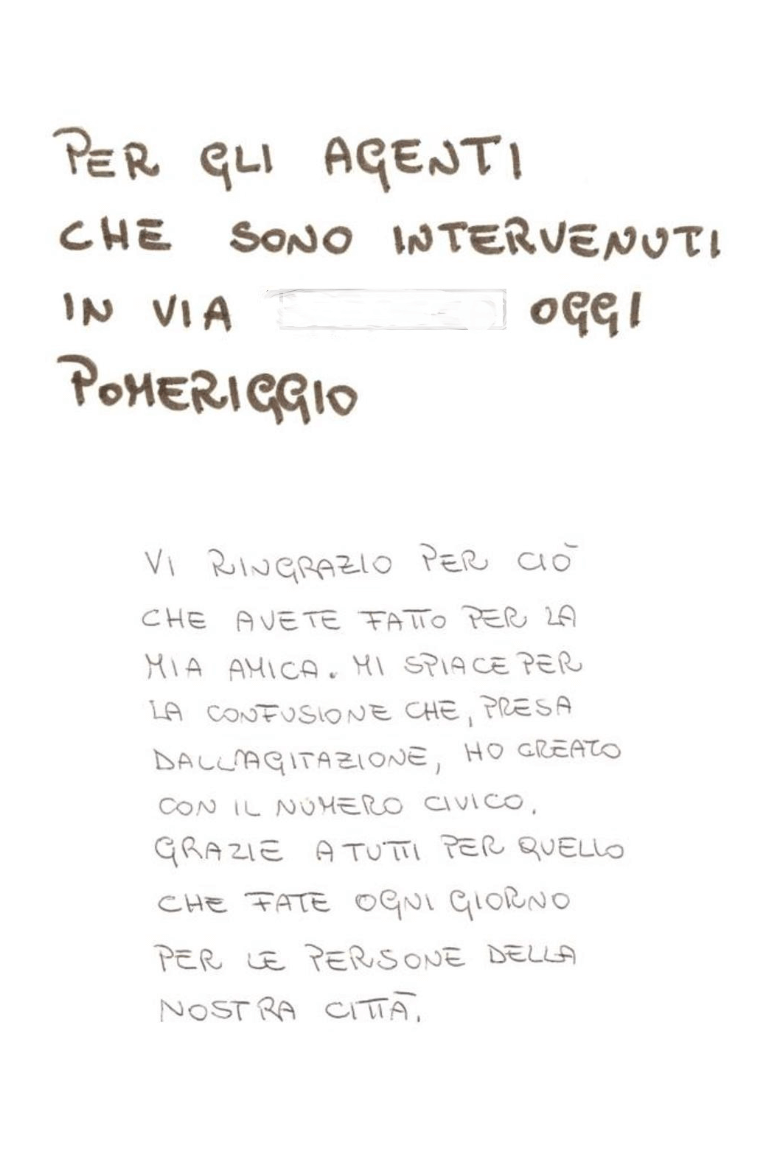 PER GLI AGENTI
CHE SONO INTERVENUTI
IN VIA OGGI
POMERIGGIO
VI RINGRAZIO PER CIÒ
CHE AVETE FATTO PER LA
MIA AMICA. MI SPIACE PER
LA CONFUSIONE CHE, PRESA
DALL'AGITAZIONE, HO CREATO
CON IL NUMERO CIVICO.
GRAZIE A TUTTI PER QUELLO
CHE FATE OGNI GIORNO
PER LE PERSONE DELLA
NOSTRA CITTÀ.